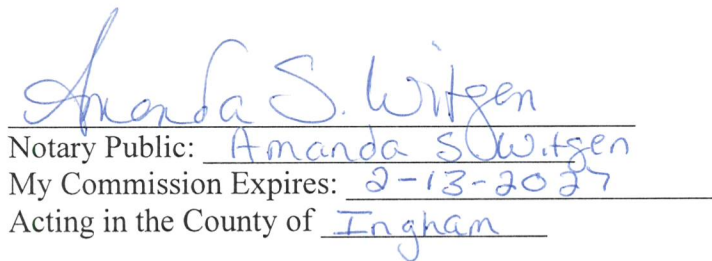 Amanda S. Witgen
Notary Public: Amanda S Witgen
My Commission Expires: 2-13-2027
Acting in the County of Ingham